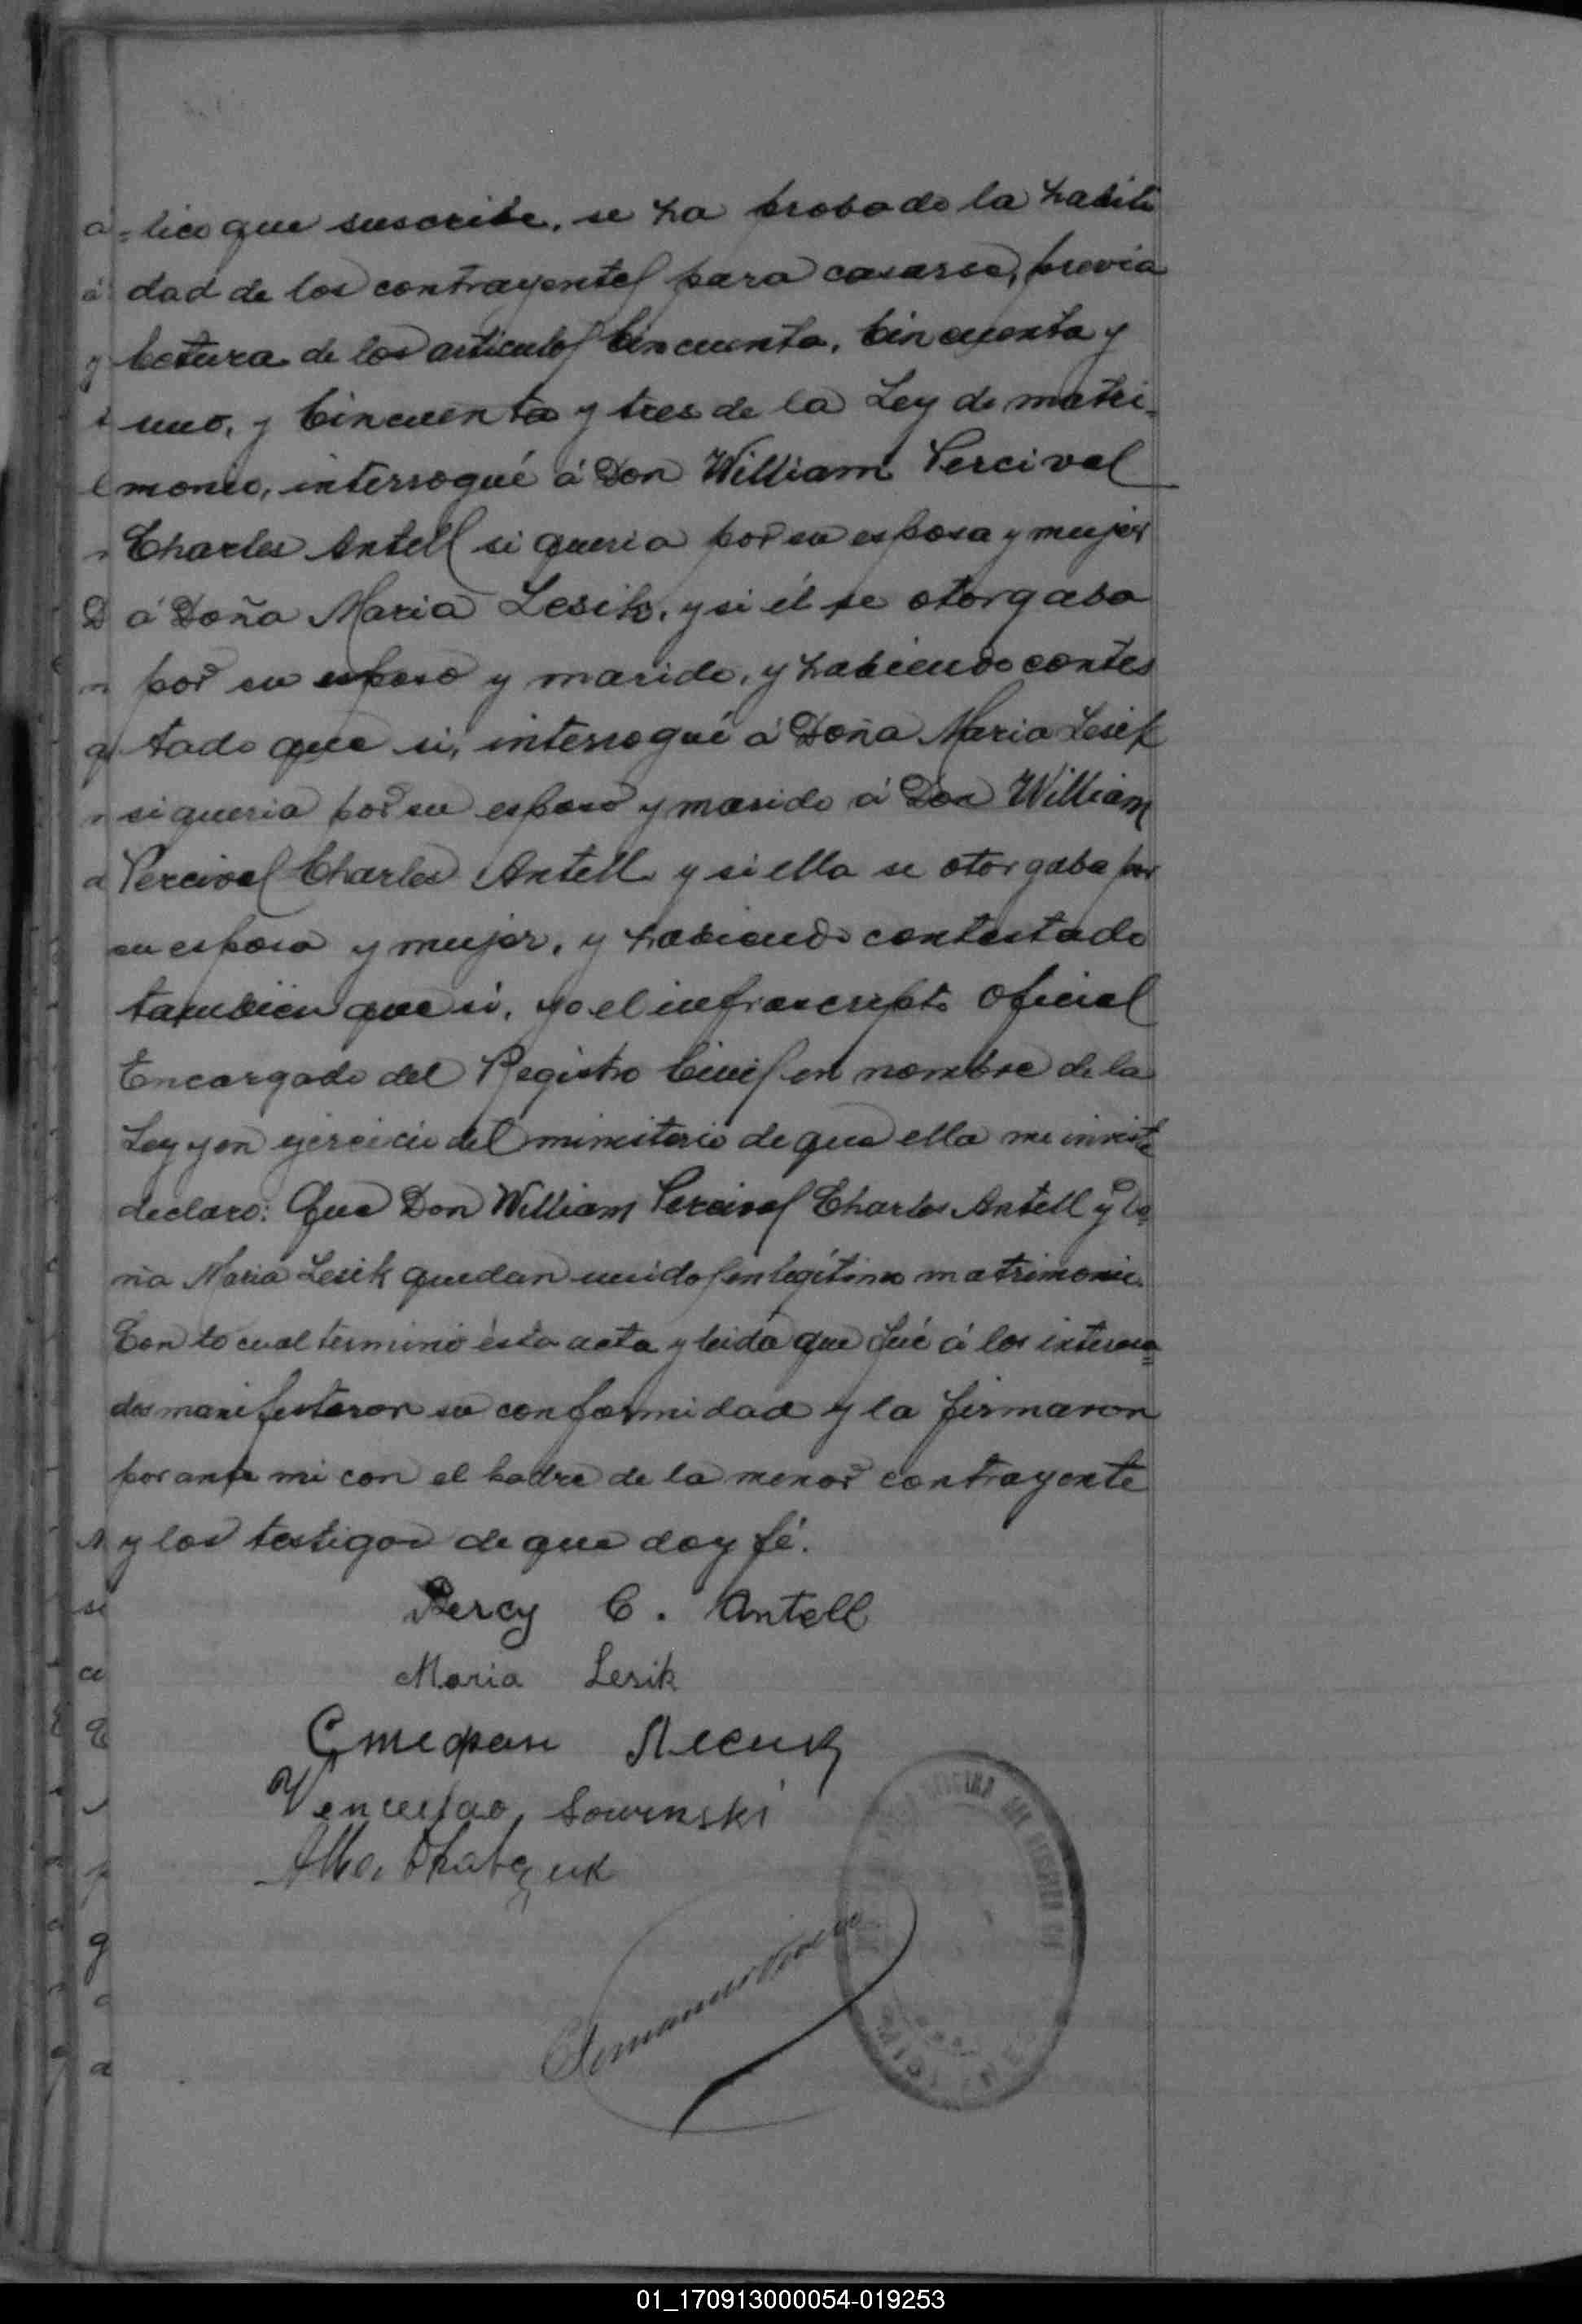 =lico que suscribe, se ha probado la habili
dad de los contrayentes para casarse, previa
lectura de los articulos Cincuenta, Cincuenta y
uno, y Cincuenta y tres de la Ley de matri=
monio, interrogué á Don William Percival
Charles Antell si queria por su esposa y mujer
á Doña Maria Lesik, y si él se otorgaba
por su esposo y marido, y habiendo contes
tado que si, interrogué á Doña Maria Lesik
si queria por su esposo y marido á Don William
Percival Charles Antell y si ella se otorgaba por
su esposa y mujer, y habiendo contestado
tambien que si, yo el infrascripto Oficial
Encargado del Registro Civil en nombre de la
Ley y en ejercicio del ministerio de que ella me inviste
declaro: Que Don William Percival Charles Antell y Do=
ña Maria Lesik quedan unidos en legítimo matrimonio.
Con lo cual terminó ésta acta y leida que fué á los interesa=
dos manifestaron su conformidad y la firmaron
por ante mi con el padre de la menor contrayente
y los testigos de que doy fé.
Percy C. Antell
Maria Lesik
Стефан Лесик
Venceslao Sowinski
01_170913000054-019253